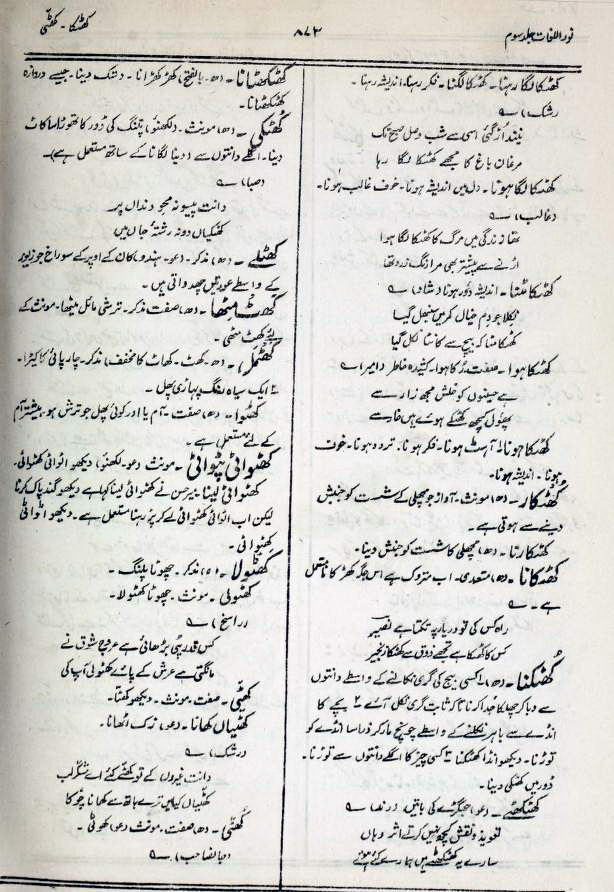 نور اللغات جلد سوم
۸۷۲
کھٹکا - کھٹّی
کھٹکا لگا رہنا - کھٹکا لگنا - فکر رہنا، اندیشہ رہنا -
(رشک) ؎
نیند اُڑ گئی اسی سے شب وصل صبح تک
مرغانِ باغ کا مجھے کھٹکا لگا رہا
کھٹکا لگا ہونا - دل میں اندیشہ ہونا - خوف غالب ہونا -
(غالب) ؎
تھا زندگی میں مرگ کا کھٹکا لگا ہوا
اڑنے سے پیشتر بھی مرا رنگ زرد تھا
کھٹکا مٹنا - اندیشہ دور ہونا (شاد) ؎
نکلا جو دم خیال کمر میں سنبھل گیا
کھٹکا مٹا کہ بیچ سے کانٹا نکل گیا
کھٹکا ہوا - صفت - ڈرا ہوا - کشیدہ خاطر (امیر) ؎
بے چینوں کو خلش مجھ زار سے
پھول کچھ کھٹکے ہوئے ہیں خار سے
کھٹکا ہونا - آہٹ ہونا - فکر ہونا - تردد ہونا - خوف
ہونا - اندیشہ ہونا -
کھٹکار - (ھ) مونث - آواز جو مچھلی کے شست کو جنبش
دینے سے ہوتی ہے -
کھٹکارنا - (ھ) مچھلی کا شست کو جنبش دینا -
کھٹکانا - (ھ) متعدی - اب متروک ہے اس جگہ کھڑکانا مستعمل
ہے - ؎
راہ کس کی تو در یار پہ تکتا ہے نصیر
کس کا کھٹکا ہے تجھے ذوق سے کھٹکا زنجیر
کھٹکنا - (ھ) ۱ کسی بیج کی گری نکالنے کے واسطے دانتوں
سے دبا کر چھلکا جدا کرنا تاکہ ثابت گری نکل آئے ۲ بچے کا
انڈے سے باہر نکلنے کے واسطے چونچ مار کر ذرا سا انڈے کو
توڑنا - دیکھو انڈا کھٹکنا ۳ کسی چیز کا اگلے دانتوں سے توڑنا -
ڈور میں کھٹکی دینا -
کھٹکھٹے - (عو) جھگڑے کی باتیں (رند) ؎
تعویذ و نقش کچھ نہیں کرتے اثر وہاں
سارے یہ کھٹکھٹے ہیں ہمارے کئے ہوئے
کھٹکھٹانا - (ھ) بالفتح، کھڑکھڑانا - دستک دینا - جیسے دروازہ
کھٹکھٹانا -
کھٹکی - (ھ) مونث - (لکھنؤ) پتنگ کی ڈور کا تھوڑا سا کاٹ
دینا - اگلے دانتوں سے (دینا لگانا کے ساتھ مستعمل ہے) -
(صبا) ؎
دانت پیسو نہ مجھ دنداں پر
کھٹکیاں دو نہ رشتۂ جاں میں
کھٹلے - (ھ) مذکر - (عو - ہندو) کان کے اوپر کے سوراخ جو زیور
کے واسطے عورتیں چھدواتی ہیں -
کھٹ مٹھا - (ھ) صفت مذکر - ترشی مائل میٹھا - مونث کے
لئے کھٹ مٹھی -
کھٹمل - (ھ - کھٹ - کھاٹ کا مخفف) مذکر - چارپائی کا کیڑا -
۲ ایک سیاہ رنگ پہاڑی پھل -
کھٹوا - (ھ) صفت - آم یا اور کوئی پھل جو ترش ہو - بیشتر آم
کے لئے مستعمل ہے -
کھٹواٹی پٹواٹی - مونث (عو - لکھنؤ) دیکھو اٹواٹی کھٹواٹی -
کھٹواٹی لینا - میرحسن نے کھٹواٹی لینا کہا ہے دیکھو گند پاک کرنا
لیکن اب اٹواٹی کھٹواٹی لے کر پڑ رہنا مستعمل ہے - دیکھو اٹواٹی
کھٹواٹی -
کھٹولا - (ھ) مذکر - چھوٹا پلنگ -
کھٹولی - مونث - چھوٹا کھٹولا -
(راسخ) ؎
کس قدر پہنی بڑھائی ہے عروجِ شوق نے
مانگتی ہے عرش کے پائے کھٹولی آپ کی
کھٹّی - صفت - مونث - دیکھو کھٹّا -
کھٹیاں کھانا - (عو) زک اٹھانا -
(رشک) ؎
دانت غیروں کے تو کھٹے کئے اے شکر لب
کھٹیاں کیا میں ترے ہاتھ سے کھانا چوکا
کھٹّی - (ھ) صفت - مونث (عو) کھوٹی -
(جانصاحب) ؎